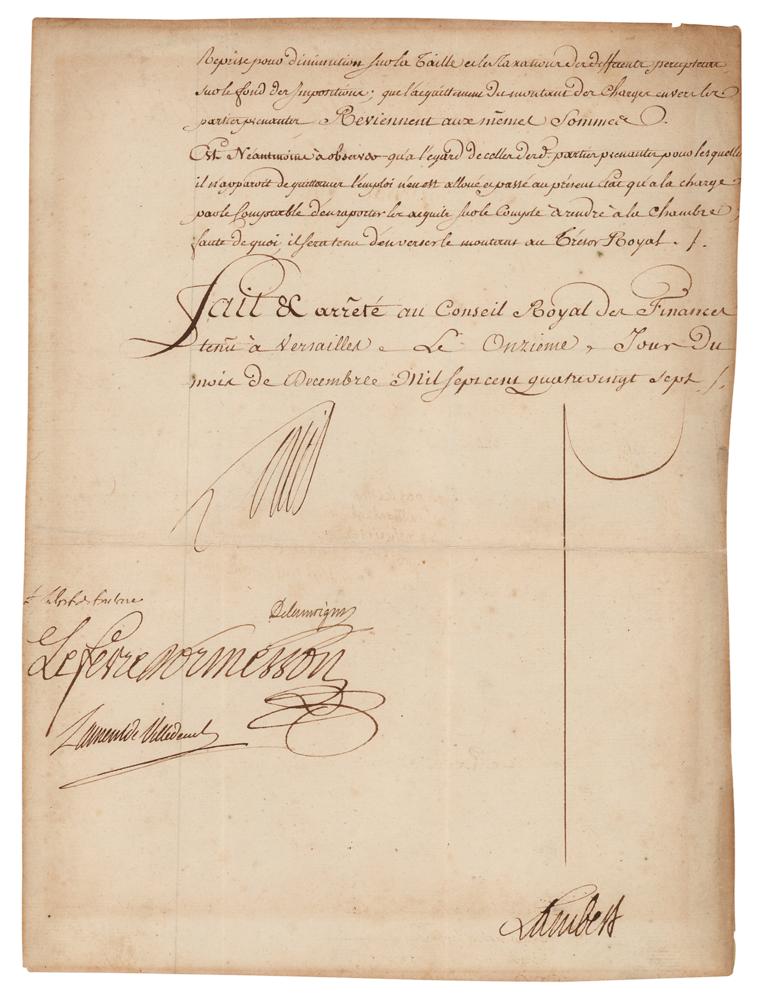 Reprise pour diminution sur la Taille et les Taxations des differents percepteurs
sur le fond des Impositions; que l'acquittement du montant des Charges envers les
parties prenantes Reviennent aux mêmes Sommes.
Est Néantmoins à observer qu'à l'égard de celles desd. parties prenantes pour lesquelles
il n'apparoit de quittances l'emploi n'en est alloué et passé au présent Etat qu'à la charge
par le Comptable d'en raporter les acquits sur le Compte à rendre à la Chambre
faute de quoi, il sera tenu d'en verser le montant au Trésor Royal. /.
Fait & arrêté au Conseil Royal des Finances
tenu à Versailles Le Onzieme Jour du
mois de Decembre Mil sept cent quatrevingt sept /.
Louis
Delamoignon
Lefevre Dormesson
Laurent de Villedeuil
Lambert